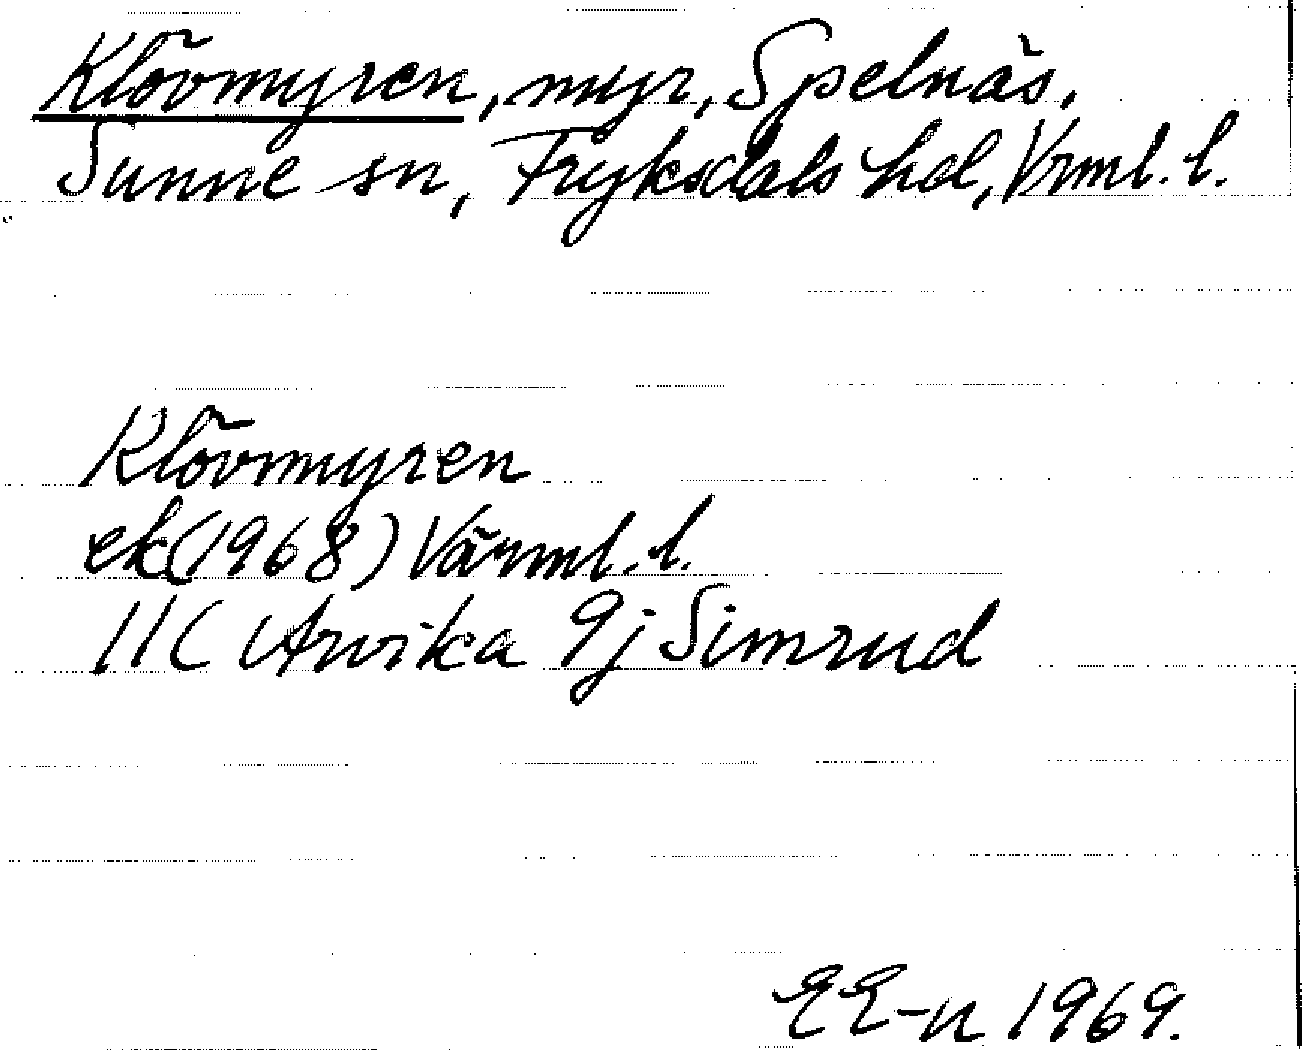 Klövmyren, myr, Spelnäs,
Sunne sn, Fryksdals hd, Vrml. l.
Klövmyren
ek (1968) Värml. l.
11C Arvika 9j Simrud
EE-n 1969.